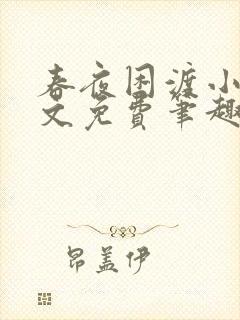 春夜困渡小
文免费笔趣
昂盖伊